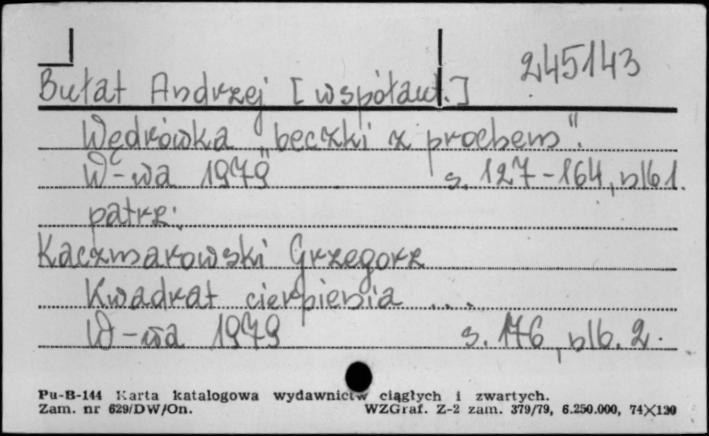 245143
Bułat Andrzej [współaut.]
Wędrówka „beczki z prochem".
W-wa 1979 s. 127-164, nlb 1.
patrz:
Kaczmarowski Grzegorz
Kwadrat cierpienia ...
W-wa 1979 s. 176, nlb. 2.
Pu-B-144 Karta katalogowa wydawnictw ciągłych i zwartych.
Zam. nr 629/DW/On. WZGraf. Z-2 zam. 379/79, 6.250.000, 74X120